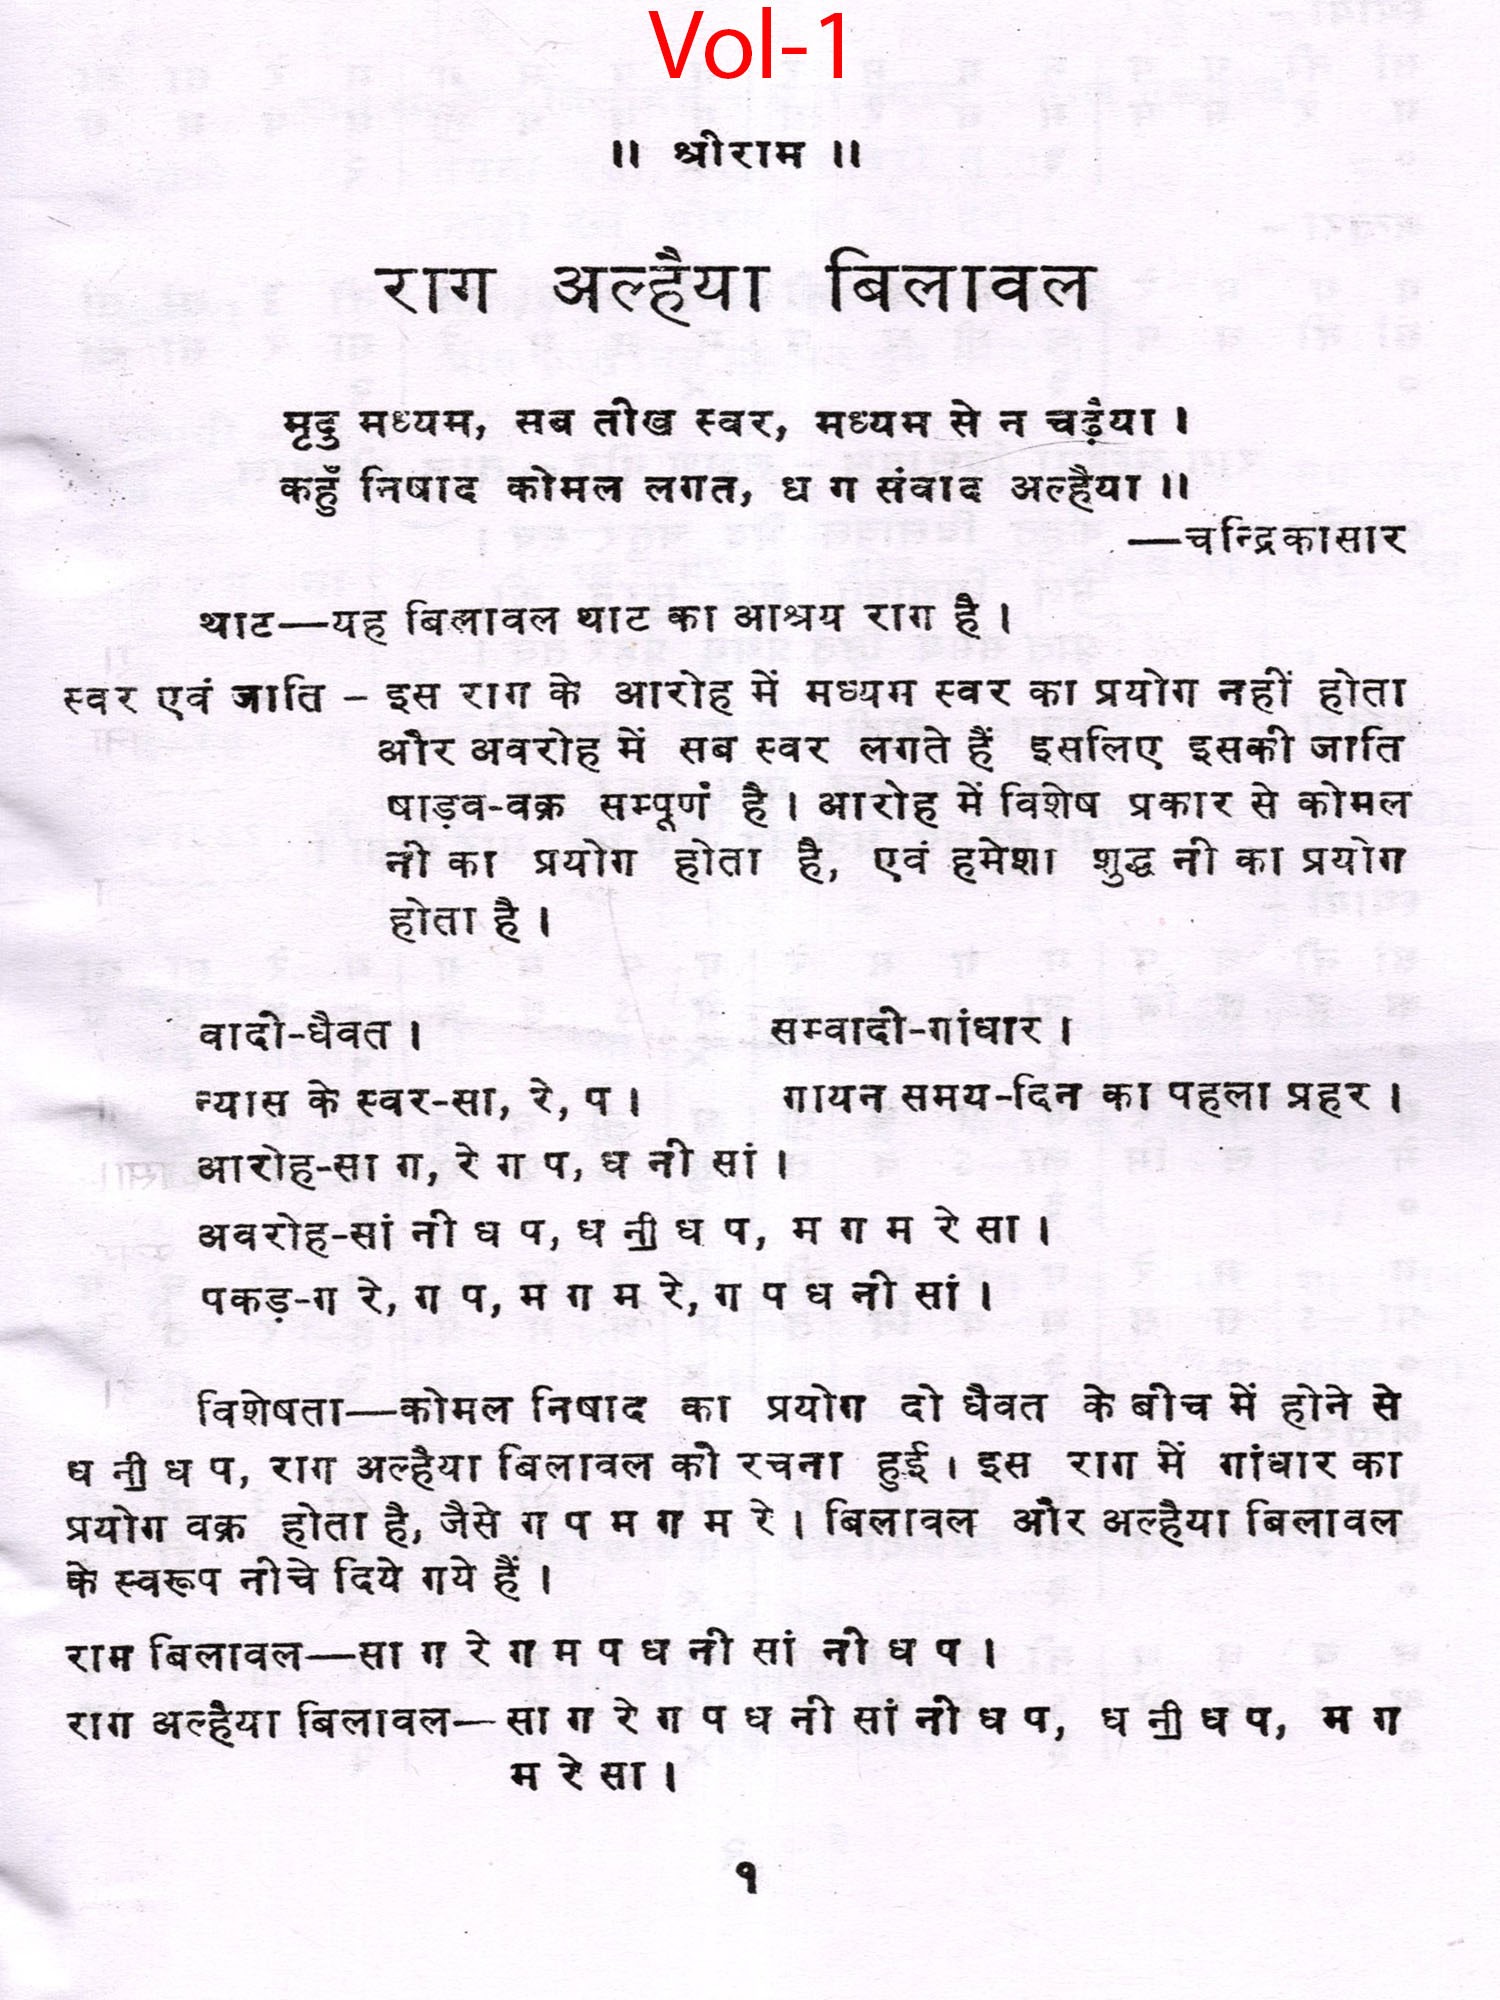 Vol-1
॥ श्रीराम ॥
राग अल्हैया बिलावल
मृदु मध्यम, सब तीख स्वर, मध्यम से न चढ़ैया ।
कहुँ निषाद कोमल लगत, ध ग संवाद अल्हैया ॥
—चन्द्रिकासार
थाट—यह बिलावल थाट का आश्रय राग है ।
स्वर एवं जाति – इस राग के आरोह में मध्यम स्वर का प्रयोग नहीं होता
और अवरोह में सब स्वर लगते हैं इसलिए इसकी जाति
षाड़व-वक्र सम्पूर्ण है । आरोह में विशेष प्रकार से कोमल
नी का प्रयोग होता है, एवं हमेशा शुद्ध नी का प्रयोग
होता है ।
वादी-धैवत । सम्वादी-गांधार ।
न्यास के स्वर-सा, रे, प । गायन समय-दिन का पहला प्रहर ।
आरोह-सा ग, रे ग प, ध नी सां ।
अवरोह-सां नी ध प, ध नी॒ ध प, म ग म रे सा ।
पकड़-ग रे, ग प, म ग म रे, ग प ध नी सां ।
विशेषता—कोमल निषाद का प्रयोग दो धैवत के बीच में होने से
ध नी॒ ध प, राग अल्हैया बिलावल की रचना हुई । इस राग में गांधार का
प्रयोग वक्र होता है, जैसे ग प म ग म रे । बिलावल और अल्हैया बिलावल
के स्वरूप नीचे दिये गये हैं ।
राम बिलावल—सा ग रे ग म प ध नी सां नी ध प ।
राग अल्हैया बिलावल—सा ग रे ग प ध नी सां नी ध प, ध नी॒ ध प, म ग
म रे सा ।
१